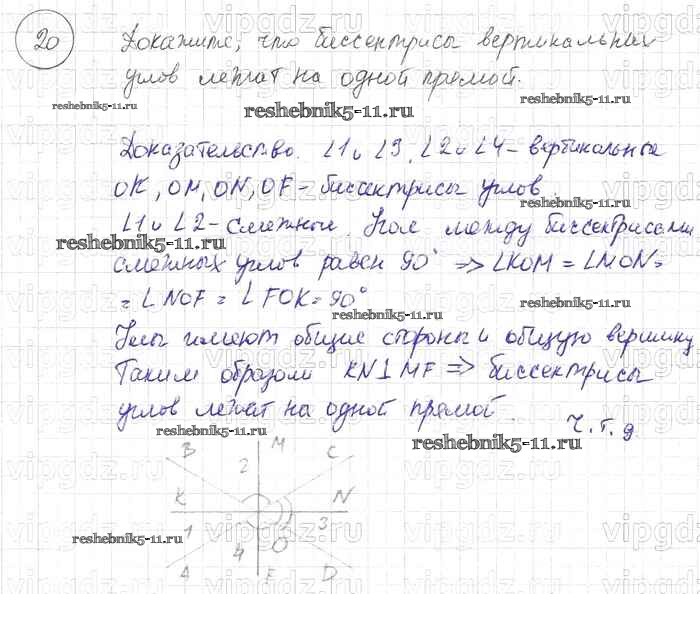 20
Докажите, что биссектрисы вертикальных
углов лежат на одной прямой.
reshebnik5-11.ru
reshebnik5-11.ru
reshebnik5-11.ru
Доказательство. ∠1 и ∠3, ∠2 и ∠4 - вертикальные
OK, OM, ON, OF - биссектрисы углов.
reshebnik5-11.ru
∠1 и ∠2 - смежные. Угол между биссектрисами
reshebnik5-11.ru
смежных углов равен 90° => ∠KOM = ∠MON =
= ∠NOF = ∠FOK = 90°
reshebnik5-11.ru
Углы имеют общие стороны и общую вершину
Таким образом KN⊥MF => биссектрисы
углов лежат на одной прямой.
Ч.т.д
reshebnik5-11.ru
reshebnik5-11.ru
B M C
2
K N
1 3
reshebnik5-11.ru
4 O
reshebnik5-11.ru
A F D
vipgdz.ru